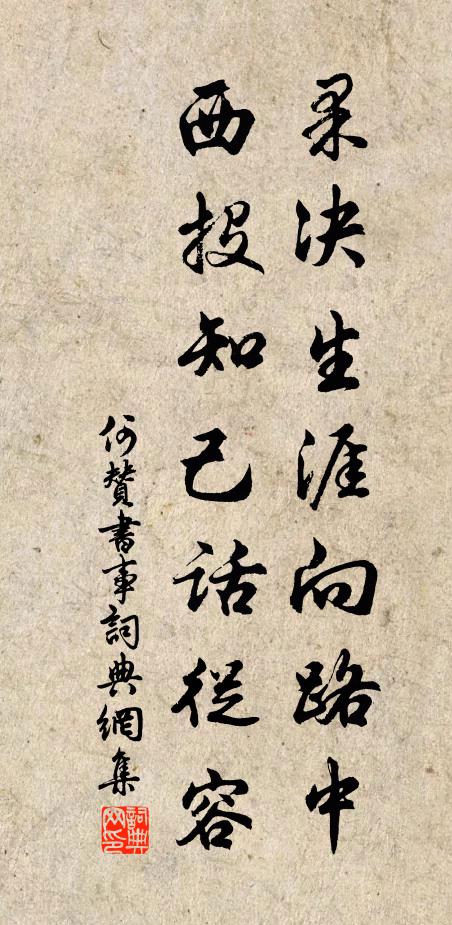 果决生涯向路中
西投知己話從容
何贊書事詞典網集
詞典網印